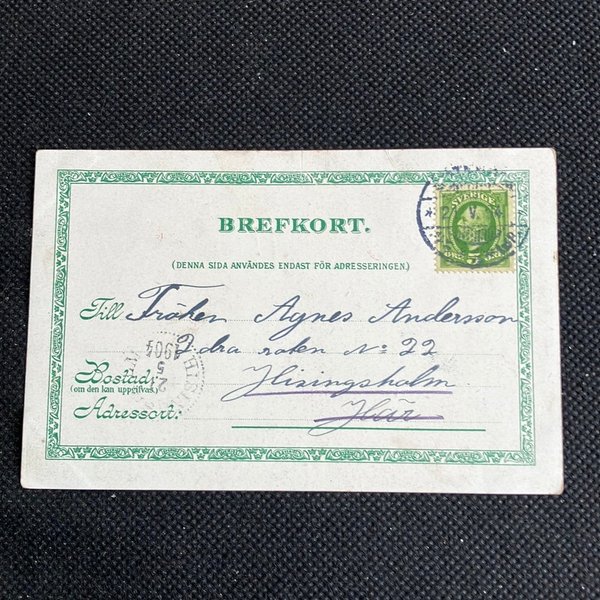 BREFKORT.
(DENNA SIDA ANVÄNDES ENDAST FÖR ADRESSERINGEN.)
SVERIGE
5
Till Fröken Agnes Andersson
2dra roten No 22
Bostad: Hisingsholm
(om den kan uppgifvas)
Adressort: Här
1904
2 5